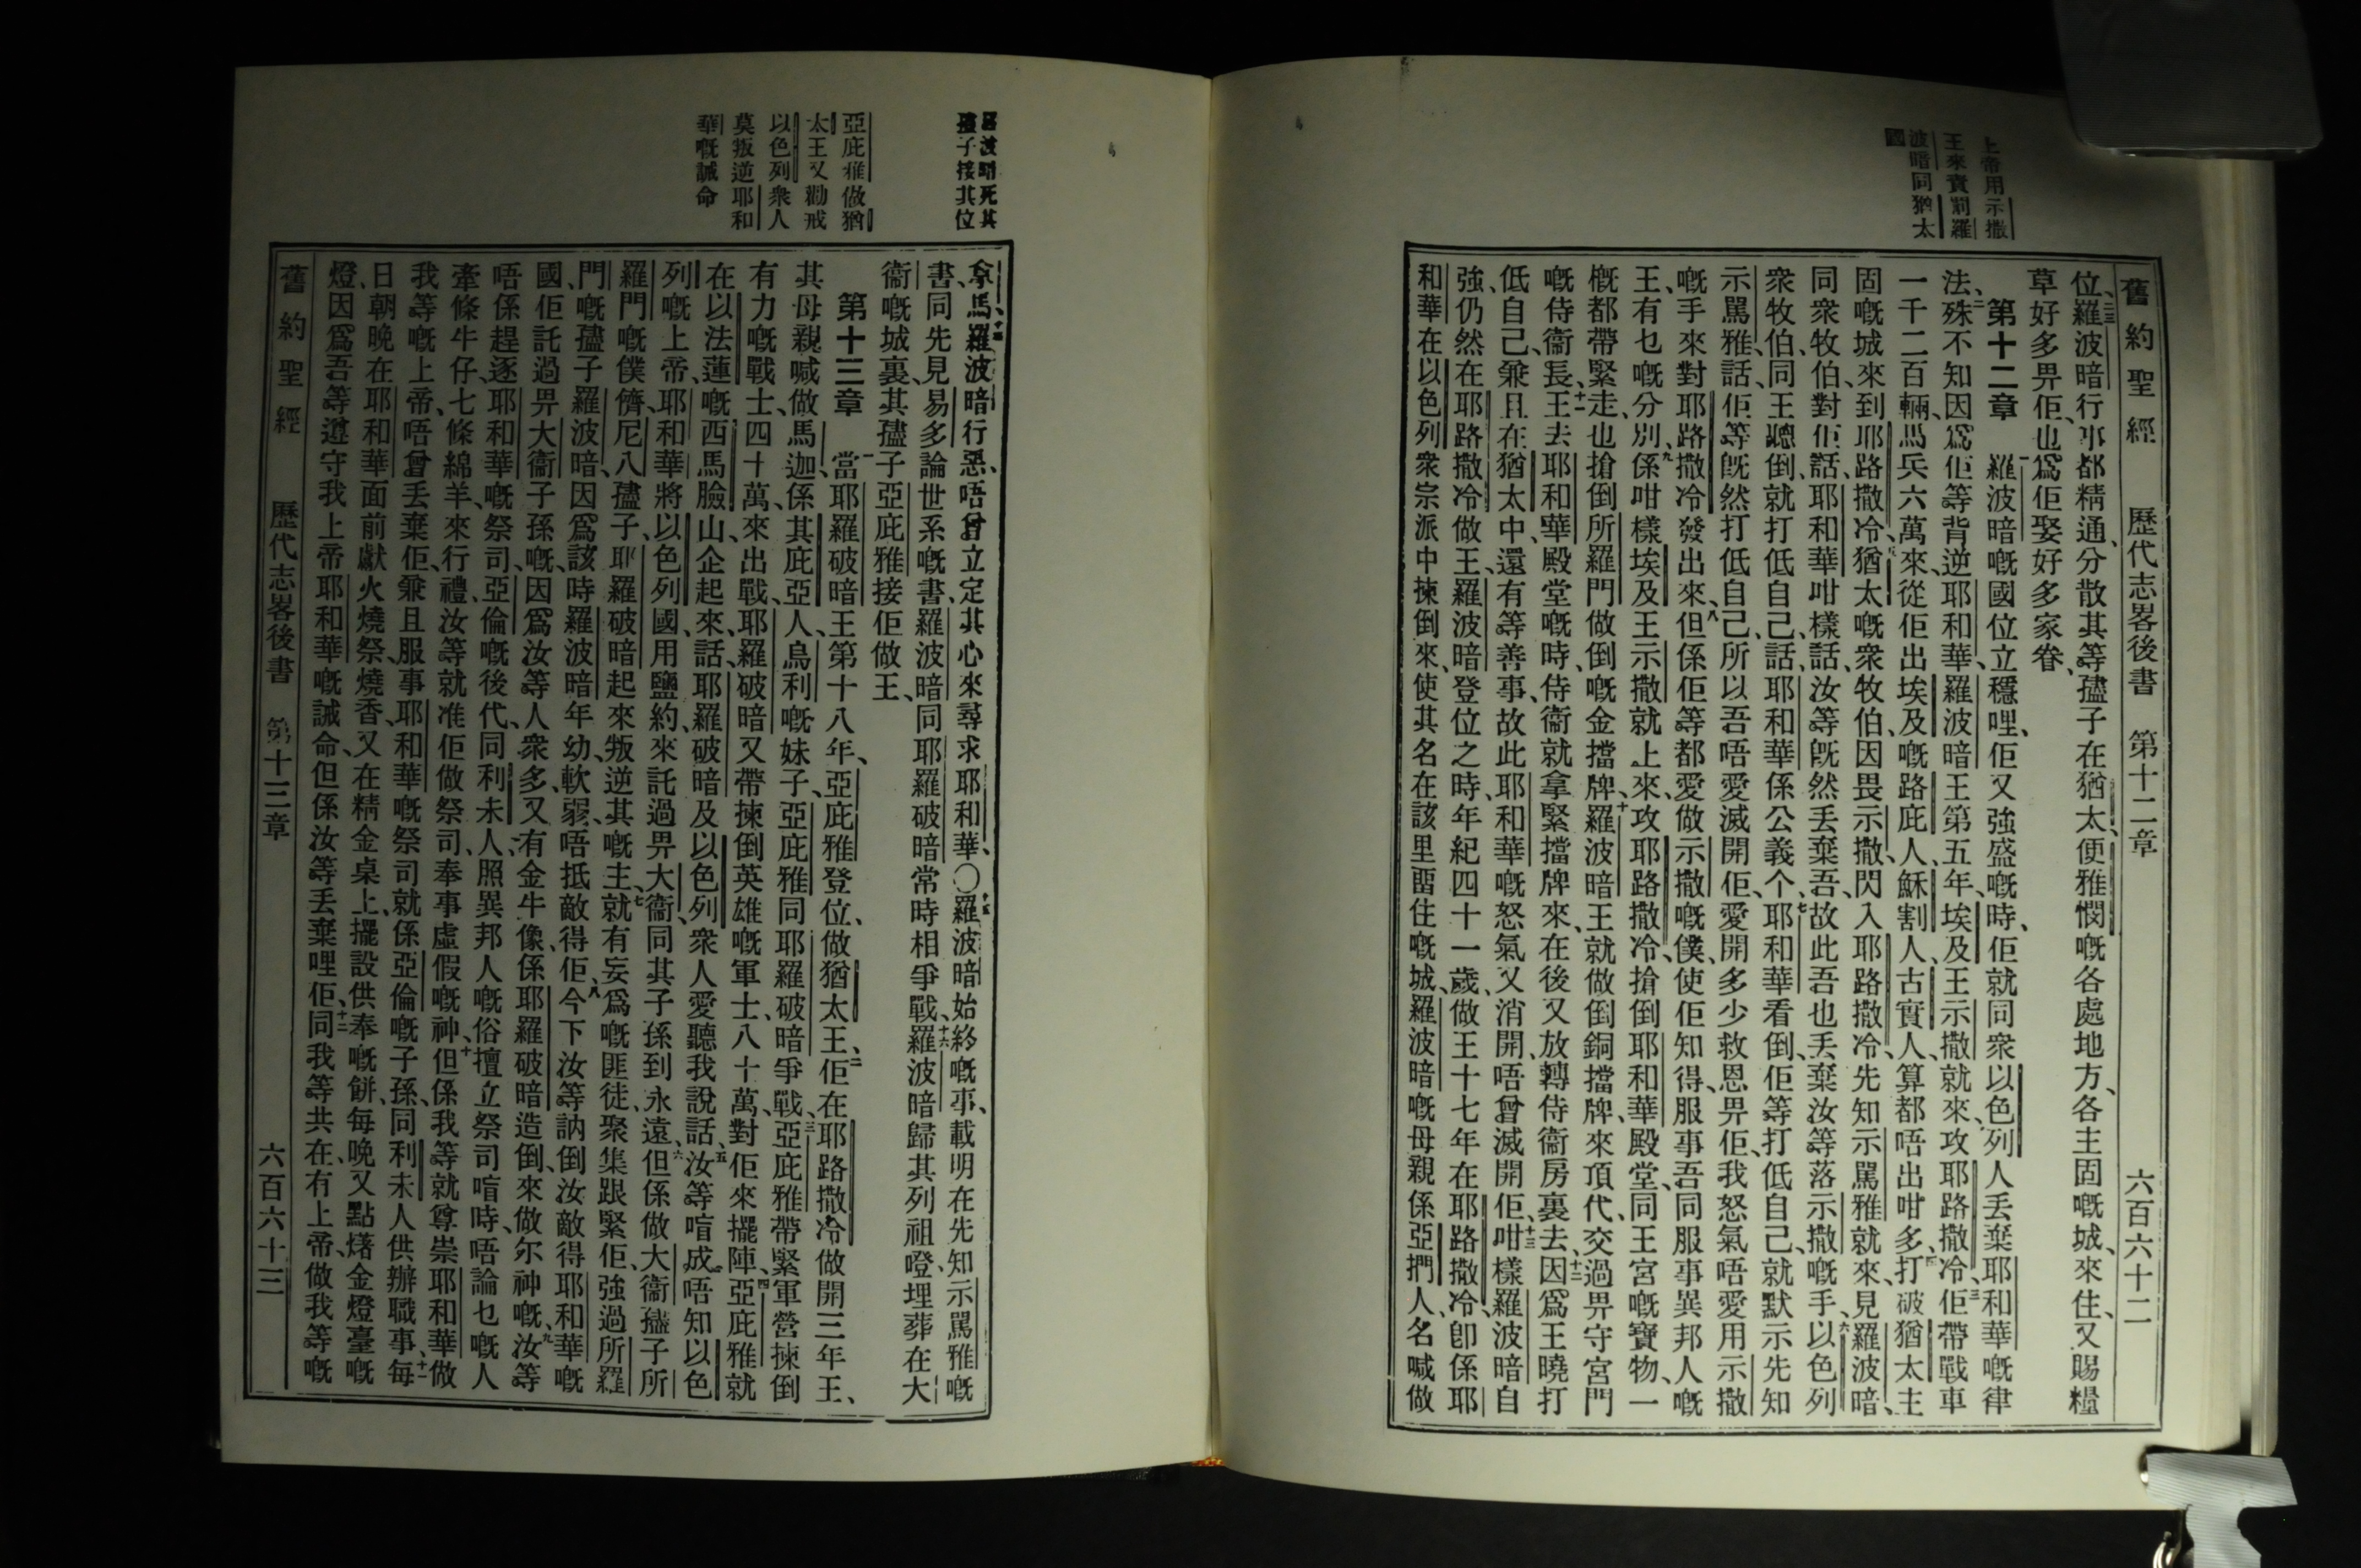 舊約聖經 歷代志畧後書 第十二章 六百六十二
上帝用示撒
王來責罰羅
波暗同猶太
國
位、二三羅波暗行事都精通、分散其等孻子在猶太、便雅憫嘅各處地方、各主固嘅城、來住、又賜糧
草好多畀佢、也爲佢娶好多家眷、
第十二章 一羅波暗嘅國位立穩哩、佢又強盛嘅時、佢就同衆以色列人丢棄耶和華嘅律
法、二殊不知因爲佢等背逆耶和華、羅波暗王第五年、埃及王示撒就來、攻耶路撒冷、三佢帶戰車
一千二百輛、馬兵六萬來、從佢出埃及嘅路庇人、穌割人、古實人、算都唔出咁多、四打破猶太主
固嘅城、來到耶路撒冷、五猶太嘅衆牧伯、因畏示撒、閃入耶路撒冷、先知示罵雅就來、見羅波暗、
同衆牧伯、對佢話、耶和華咁樣話、汝等旣然丢棄吾、故此吾也丢棄汝等落示撒嘅手、六以色列
衆牧伯、同王聽倒、就打低自己、話、耶和華係公義个、七耶和華看倒、佢等打低自己、就默示先知
示罵雅、話、佢等旣然打低自己、所以吾唔愛滅開佢、愛開多少救恩畀佢、我怒氣唔愛用示撒
嘅手來對耶路撒冷發出來、八但係佢等都愛做示撒嘅僕、使佢知得、服事吾、同服事異邦人嘅
王、有乜嘅分別、九係咁樣埃及王示撒就上來、攻耶路撒冷、搶倒耶和華殿堂、同王宮嘅寶物、一
槪都帶緊走、也搶倒所羅門做倒嘅金擋牌、十羅波暗王就做倒銅擋牌、來頂代、交過畀守宮門
嘅侍衞長、十一王去耶和華殿堂嘅時、侍衞就拿緊擋牌來、在後又放轉侍衞房裏去、十二因爲王曉打
低自己、兼且在猶太中、還有等善事、故此耶和華嘅怒氣又消開、唔曾滅開佢、十三咁樣羅波暗自
強、仍然在耶路撒冷做王、羅波暗登位之時、年紀四十一歲、做王十七年在耶路撒冷、卽係耶
和華在以色列衆宗派中揀倒來、使其名在該里畱住嘅城、羅波暗嘅母親係亞捫人、名喊做
羅波暗死其
孻子接其位
亞庇雅做猶
太王又勸戒
以色列衆人
莫叛逆耶和
華嘅誡命
拿馬、十四羅波暗行惡、唔曾立定其心來尋求耶和華、〇十五羅波暗始終嘅事、載明在先知示罵雅嘅
書、同先見易多論世系嘅書、羅波暗同耶羅破暗常時相爭戰、十六羅波暗歸其列祖嘅、埋葬在大
衞嘅城裏、其孻子亞庇雅接佢做王、
第十三章 一當耶羅破暗王第十八年、亞庇雅登位、做猶太王、二佢在耶路撒冷做開三年王、
其母親喊做馬迦、係其庇亞人、烏利嘅妹子、亞庇雅同耶羅破暗爭戰、三亞庇雅帶緊軍營揀倒
有力嘅戰士四十萬、來出戰、耶羅破暗又帶揀倒英雄嘅軍士、八十萬、對佢來擺陣、四亞庇雅就
在以法蓮嘅西馬臉山企起來、話、耶羅破暗及以色列衆人愛聽我說話、五汝等唷成唔知以色
列嘅上帝、耶和華將以色列國、用鹽約、來託過畀大衞、同其子孫到永遠、六但係做大衞孻子所
羅門嘅僕儕、尼八孻子、耶羅破暗起來叛逆其嘅主、七就有妄爲嘅匪徒、聚集跟緊佢、強過所羅
門嘅孻子羅波暗、因爲該時羅波暗年幼、軟弱、唔抵敵得佢、八今下汝等訥倒汝敵得耶和華嘅
國、佢託過畀大衞子孫嘅、因爲汝等人衆多、又有金牛像、係耶羅破暗造倒、來做尔神嘅、九汝等
唔係趕逐耶和華嘅祭司、亞倫嘅後代、同利未人、照異邦人嘅俗擅立祭司唷時、唔論乜嘅人
牽條牛仔、七條綿羊、來行禮、汝等就准佢做祭司、奉事虛假嘅神、十但係我等就尊崇耶和華做
我等嘅上帝、唔曾丢棄佢、兼且服事耶和華嘅祭司就係亞倫嘅子孫、同利未人供辦職事、十一每
日朝晚在耶和華面前獻火燒祭、燒香、又在精金桌上、擺設供奉嘅餅、每晩又點㷮金燈臺嘅
燈、因爲吾等遵守我上帝耶和華嘅誡命、但係汝等丢棄哩佢、十二同我等共在、有上帝、做我等嘅
舊約聖經 歷代志畧後書 第十三章 六百六十三